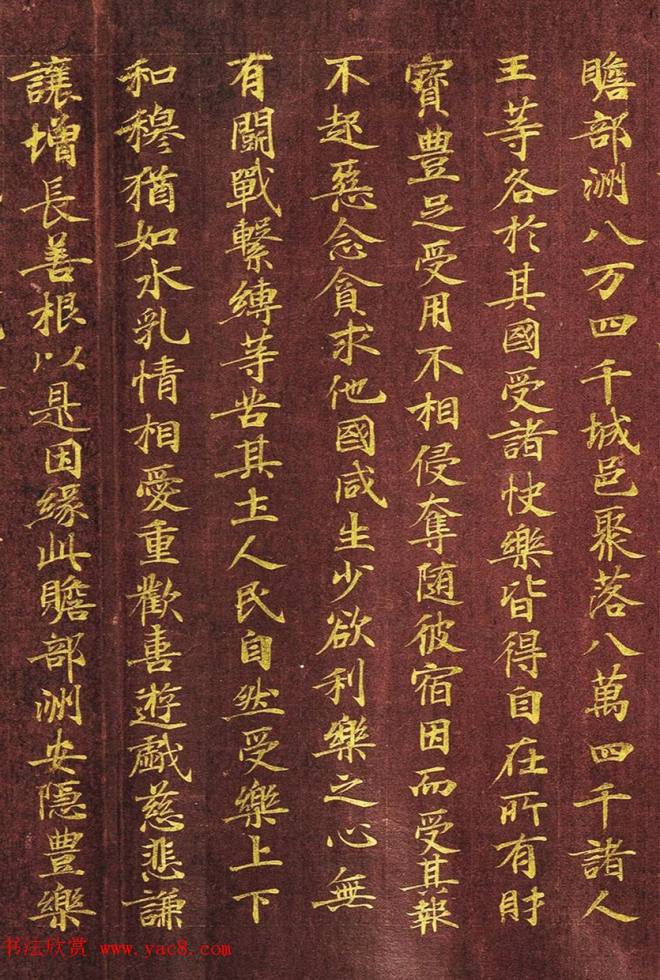 瞻部洲八万四千城邑聚落八萬四千諸人
王等各於其國受諸快樂皆得自在所有財
寶豐足受用不相侵奪随彼宿因而受其報
不起惡念貪求他國咸生少欲利樂之心無
有鬪戰繫縛等苦其土人民自然受樂上下
和穆猶如水乳情相愛重歡喜遊戲慈悲謙
讓增長善根以是因緣此瞻部洲安隱豐樂
书法欣赏 www.yac8.com